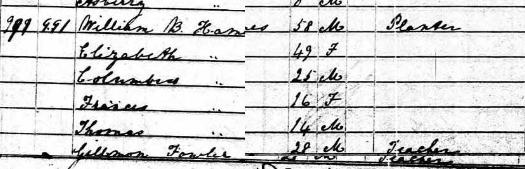 Asbury
991 William B. Hames 58 M Planter
Elizabeth " 49 F
Columbus " 25 M
Frances " 16 F
Thomas " 14 M
Fowler 28 M Teacher